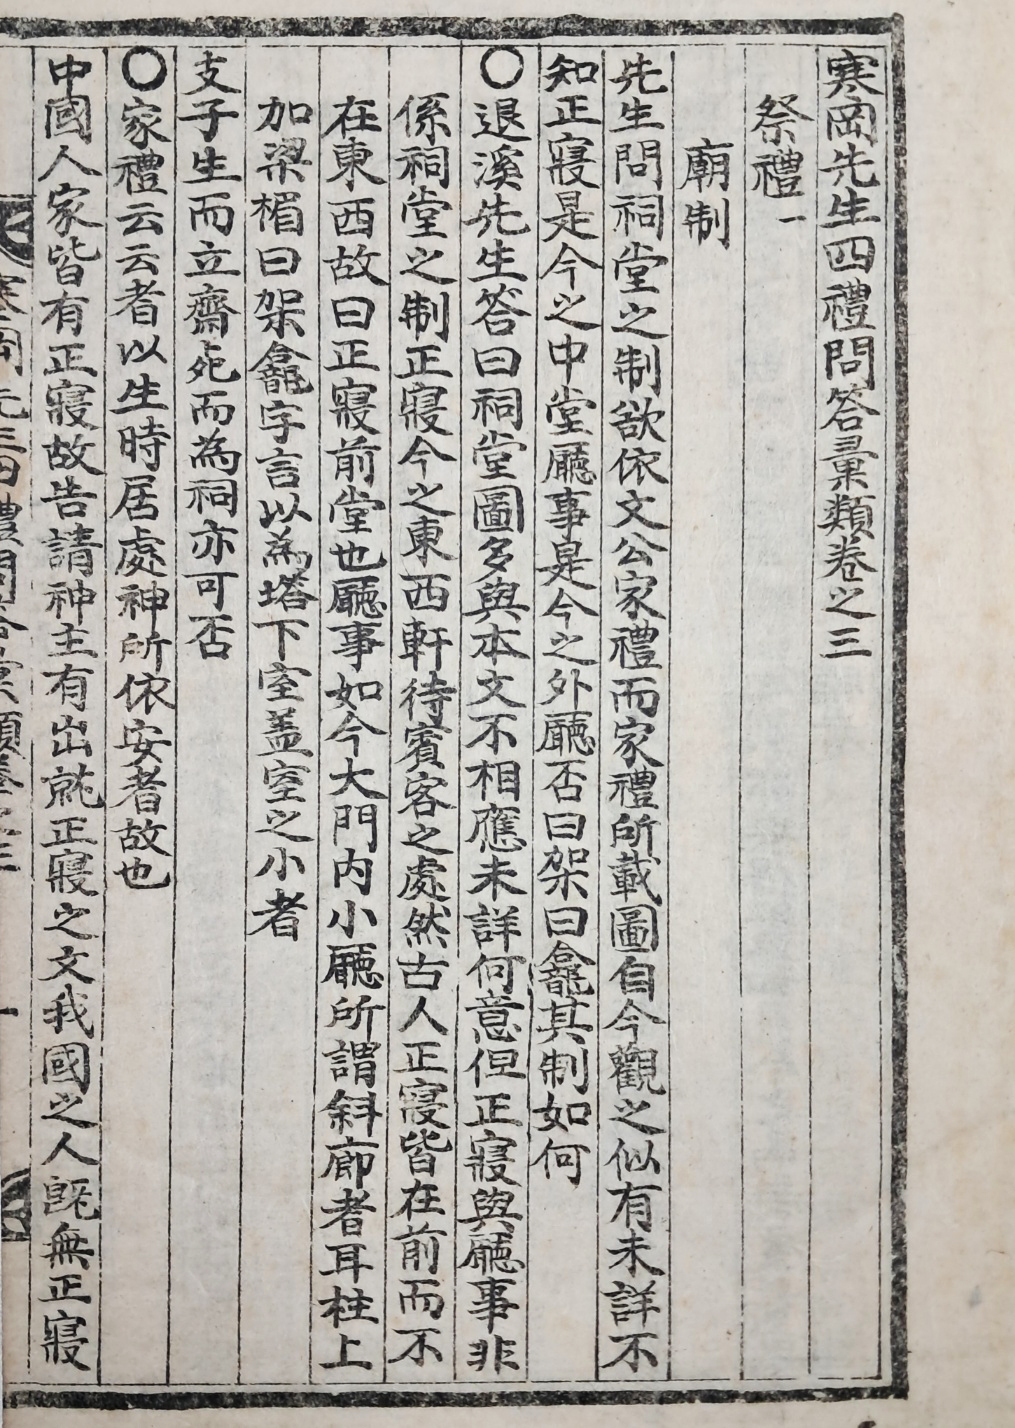 寒岡先生四禮問答彙類卷之三
祭禮一
廟制
先生問祠堂之制欲依文公家禮而家禮所載圖自今觀之似有未詳不
知正寢是今之中堂廳事是今之外廳否曰架曰龕其制如何
○退溪先生答曰祠堂圖多與本文不相應未詳何意但正寢與廳事非
係祠堂之制正寢今之東西軒待賓客之處然古人正寢皆在前而不
在東西故曰正寢前堂也廳事如今大門內小廳所謂斜廊者耳柱上
加梁楣曰架龕字言以為塔下室蓋室之小者
支子生而立齋死而為祠亦可否
○家禮云云者以生時居處神所依安者故也
中國人家皆有正寢故告請神主有出就正寢之文我國之人旣無正寢